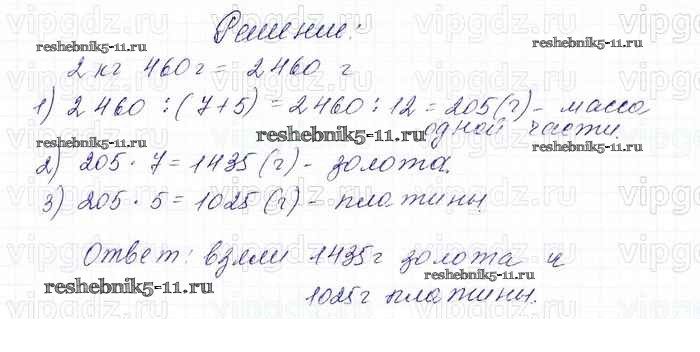 Решение:
2 кг 460 г = 2460 г
1) 2460 : (7+5) = 2460 : 12 = 205 (г) - масса
одной части.
2) 205 · 7 = 1435 (г) - золота.
3) 205 · 5 = 1025 (г) - платины.
Ответ: взяли 1435 г золота и
1025 г платины.
reshebnik5-11.ru
reshebnik5-11.ru
reshebnik5-11.ru
reshebnik5-11.ru
reshebnik5-11.ru
reshebnik5-11.ru
vipgdz.ru